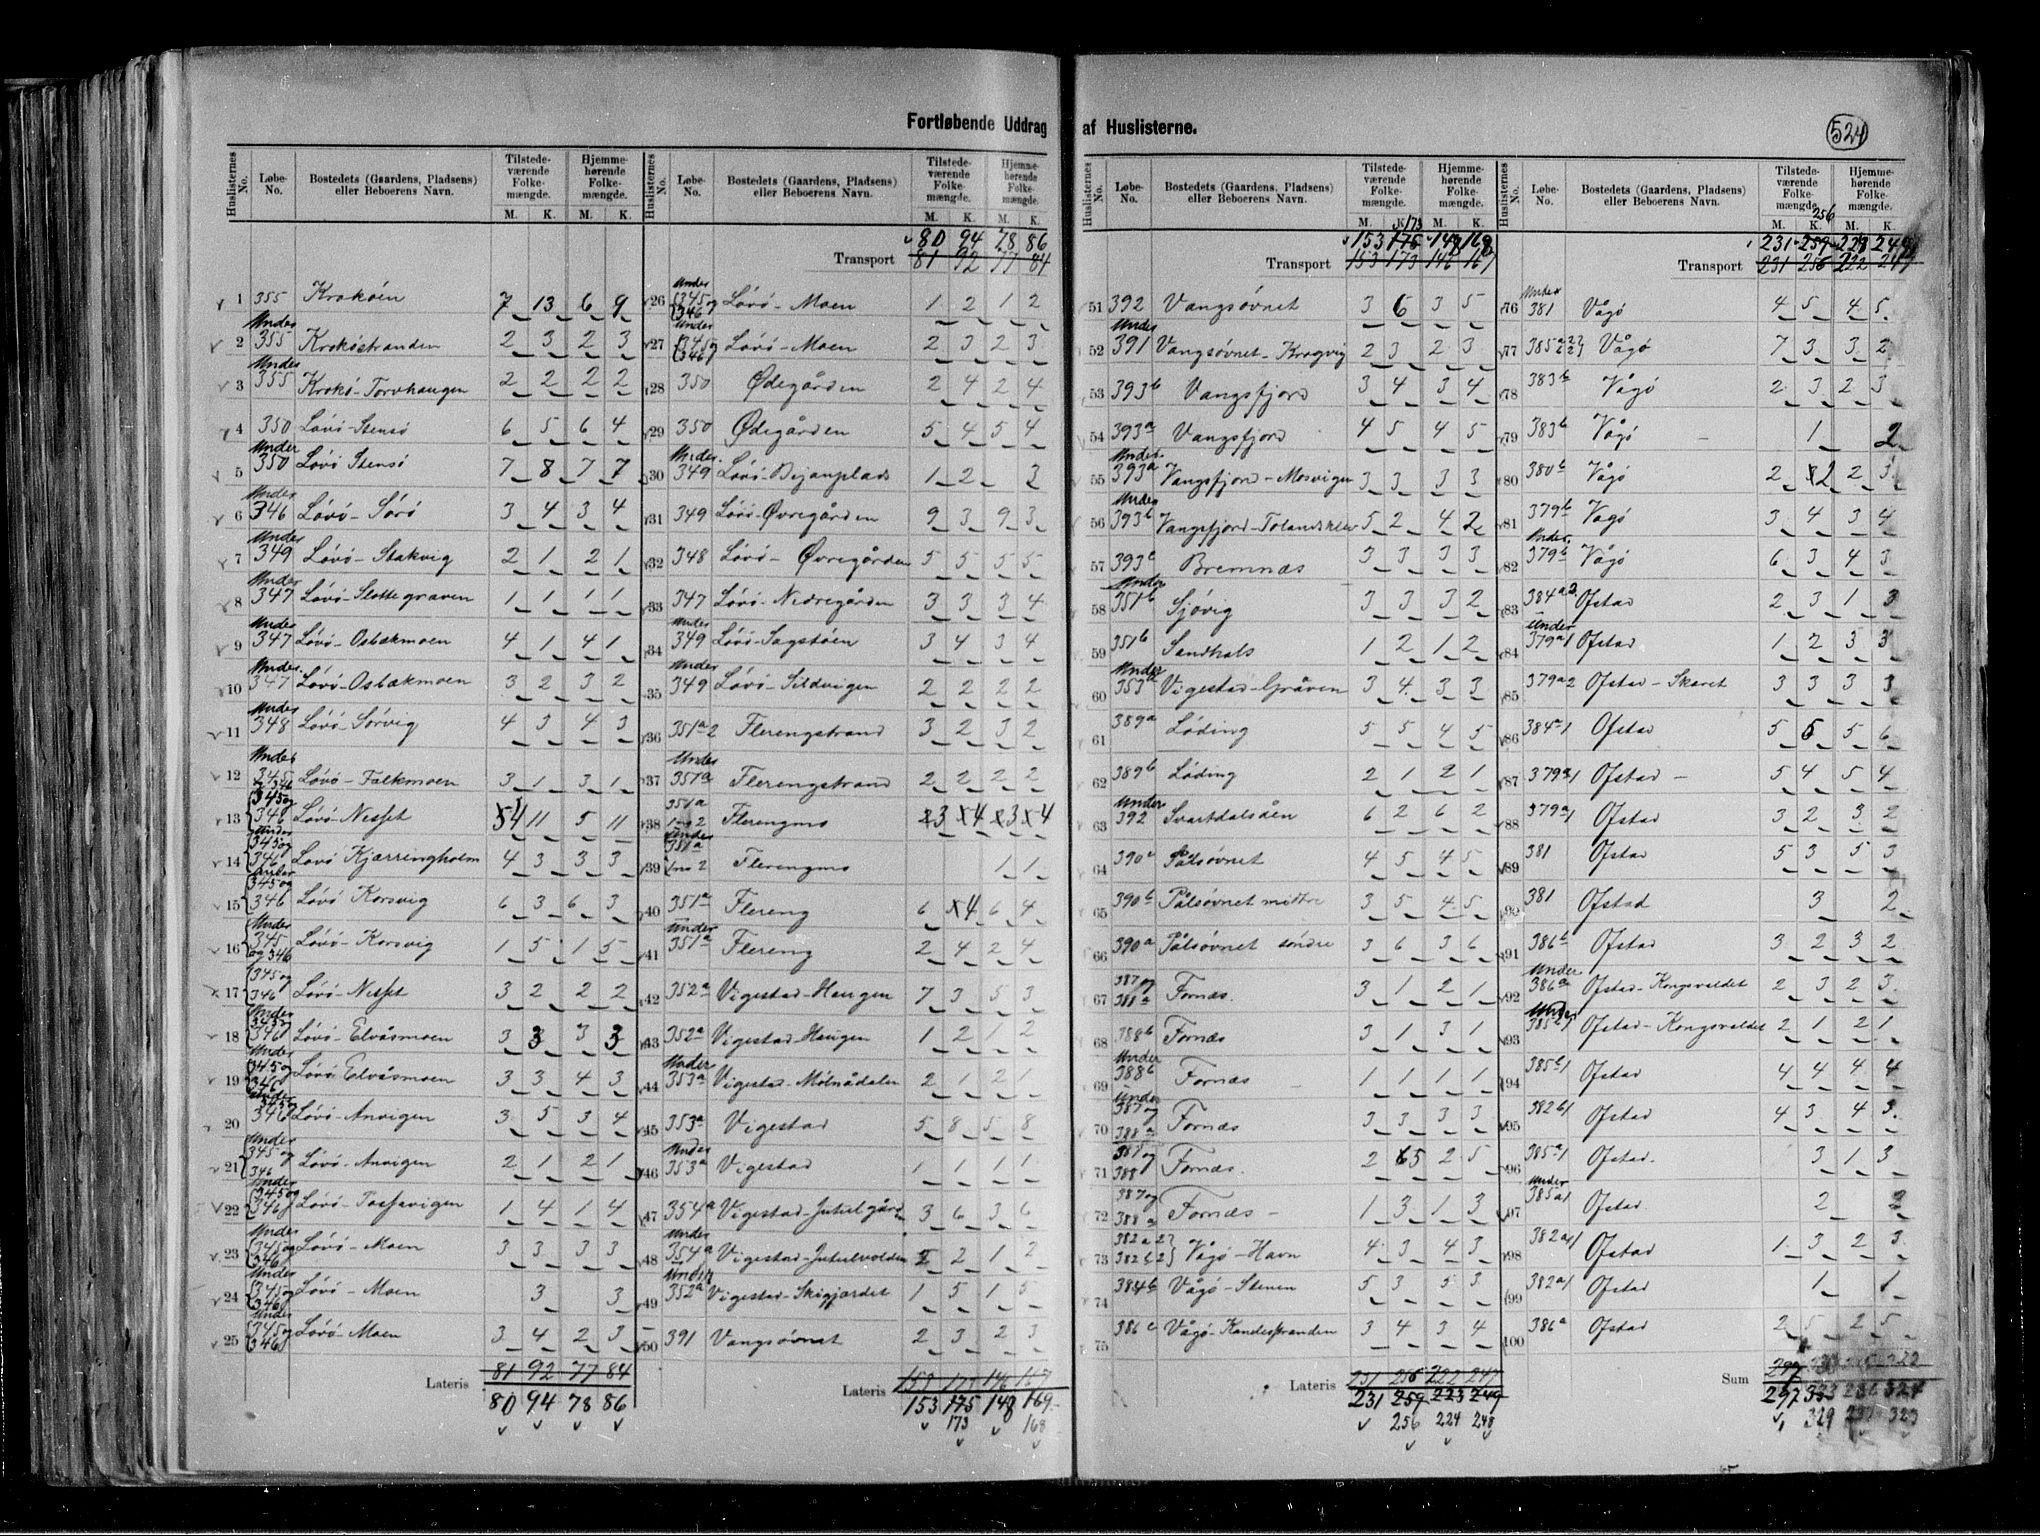 Fortløbende Uddrag af Huslisterne.
524
Huslisternes No. Løbe-No. Bostedets (Gaardens, Pladsens) eller Beboerens Navn. Tilstedeværende Folkemængde. M. K. Hjemmehørende Folkemængde. M. K.
1 355 Krokøen 7 13 6 9
2 Under 355 Krokøstranden 2 3 2 3
3 Under 355 Krokø-Torvhaugen 2 2 2 2
4 350 Løvø-Stensø 6 5 6 4
5 Under 350 Løvø Stensø 7 8 7 7
6 Under 346 Løvø-Sørø 3 4 3 4
7 Under 349 Løvø-Stakvig 2 1 2 1
8 Under 347 Løvø-Slottegraven 1 1 1 1
9 Under 347 Løvø-Osbækmoen 4 1 4 1
10 Under 347 Løvø-Osbækmoen 3 2 3 2
11 Under 348 Løvø-Sørvig 4 3 4 3
12 Under 345 og 346 Løvø-Falkmoen 3 1 3 1
13 345 og 346 Løvø-Nesset 4 11 5 11
14 Under 345 og 346 Løvø Kjærringholm 4 3 3 3
15 Under 345 og 346 Løvø Korsvig 6 3 6 3
16 Under 345 og 346 Løvø-Korsvig 1 5 1 5
17 345 og 346 Løvø-Nesset 3 2 2 2
18 Under 345 og 346 Løvø-Elvåsmoen 3 3 3 3
19 Under 345 og 346 Løvø Elvåsmoen 3 3 4 3
20 Under 345 og 346 Løvø-Anvigen 3 5 3 4
21 Under 345 og 346 Løvø-Anvigen 2 1 2 1
22 Under 345 og 346 Løvø- 1 4 1 4
23 Under 345 og 346 Løvø-Moen 3 3 3 3
24 Under 345 og 346 Løvø-Moen 3 3
25 Under 345 og 346 Løvø-Moen 3 4 2 3
81 92 77 84
Lateris 80 94 78 86
80 94 78 86
Transport 81 92 77 84
26 Under 345 og 346 Løvø-Moen 1 2 1 2
27 Under 345 og 346 Løvø-Moen 2 3 2 3
28 350 Ødegården 2 4 2 4
29 350 Ødegården 5 4 5 4
30 Under 349 Løvø-Bejanplads 1 2 3
31 349 Løvø-Øvregården 9 3 9 3
32 348 Løvø-Øvregården 5 5 5 5
33 347 Løvø-Nedregården 3 3 3 4
34 Under 349 Løvø-Sagstøen 3 4 3 4
35 349 Løvø-Sildvigen 2 2 2 2
36 351a2 Flerengstrand 3 2 3 2
37 Under 351a Flerengstrand 2 2 2 2
38 351a 1 og 2 Flerengmo 3 4 3 4
39 Under 351a 1 og 2 Flerengmo 1 1
40 351a Flereng 6 4 6 4
41 Under 351a Flereng 2 4 2 4
42 352a Vigestad-Haugen 7 3 5 3
43 352a Vigestad-Haugen 1 2 1 2
44 Under 353a Vigestad-Mølnådalen 2 1 2 1
45 353a Vigestad 5 8 5 8
46 Under 353a Vigestad 1 1 1 1
47 354a Vigestad-Jutulgården 3 6 3 6
48 Under 354a Vigestad-Jutulvolden 2 2 1 2
49 Under 352a Vigestad-Skigjærdet 1 5 1 5
50 391 Vangsøvnet 2 3 2 3
153 175 146 167
Lateris 153 175 148 169
173 168
Huslisternes No. Løbe-No. Bostedets (Gaardens, Pladsens) eller Beboerens Navn. Tilstedeværende Folkemængde. M. K. Hjemmehørende Folkemængde. M. K.
173
153 175 148 168
Transport 153 173 146 167
51 392 Vangsøvnet 3 6 3 5
52 Under 391 Vangsøvnet-Krogvig 2 3 2 3
53 393b Vangsfjord 3 4 3 4
54 393a Vangsfjord 4 5 4 5
55 Under 393a Vangsfjord-Mosvigen 3 3 3 3
56 Under 393b Vangsfjord-Tolandsklev 5 2 4 2
57 393b Bremnæs 3 3 3 3
58 Under 351b Sjøvig 3 3 3 2
59 351b Sandhals 1 2 1 2
60 Under 353b Vigestad-Gråven 3 4 3 3
61 389a Løding 5 5 4 5
62 389b Løding 2 1 2 1
63 Under 392 Svartdalsøen 6 2 6 2
64 390c Pålsøvnet 4 5 4 5
65 390b Pålsøvnet midtre 3 5 4 5
66 390a Pålsøvnet søndre 3 6 3 6
67 387 og 388a Fornæs. 3 1 2 1
68 388b Fornæs 3 1 3 1
69 Under 388b Fornæs 1 1 1 1
70 Under 387 og 388a Fornæs 3 3 3 3
71 387 og 388 Fornæs. 2 5 2 5
72 387 og 388a Fornæs- 1 3 1 3
73 382a2 382b2 Vågø-Havn 4 3 4 3
74 384b Vågø-Stenen 5 3 5 3
75 386c Vågø-Kandestranden 3 4 3 4
231 256 222 247
Lateris 231 259 223 249
256 224 248
256
231 259 223 249
Transport 231 256 222 247
76 Under 381 Vågø 4 5 4 5
77 385a2 Vågø 7 3 3 2
78 383b Vågø 2 3 2 3
79 383b Vågø 1 2
80 380b Vågø 2 2 2 3
81 379b Vågø 3 4 3 4
82 Under 379b Vågø 6 3 4 3
83 384a2 Ofstad 2 3 1 3
84 Under 379a1 Ofstad 1 2 3 3
85 379a2 Ofstad-Skaret 3 3 3 3
86 384a1 Ofstad 5 6 5 6
87 379a1 Ofstad- 5 4 5 4
88 379a1 Ofstad 3 2 3 2
89 381 Ofstad 5 3 5 3
90 381 Ofstad 3 2
91 386b Ofstad 3 2 3 2
92 Under 386a Ofstad-Kongsvoldet 2 3 2 3
93 Under 385b1 Ofstad-Kongsvoldet 2 1 2 1
94 385b1 Ofstad 4 4 4 4
95 382b1 Ofstad 4 3 4 3
96 385a1 Ofstad. 3 1 3
97 Under 385a1 Ofstad 2 2
98 382a1 Ofstad 1 3 2 3
99 382a1 Ofstad 1 1
100 386a Ofstad 2 5 2 5
297
Sum 297 333 324
329 323